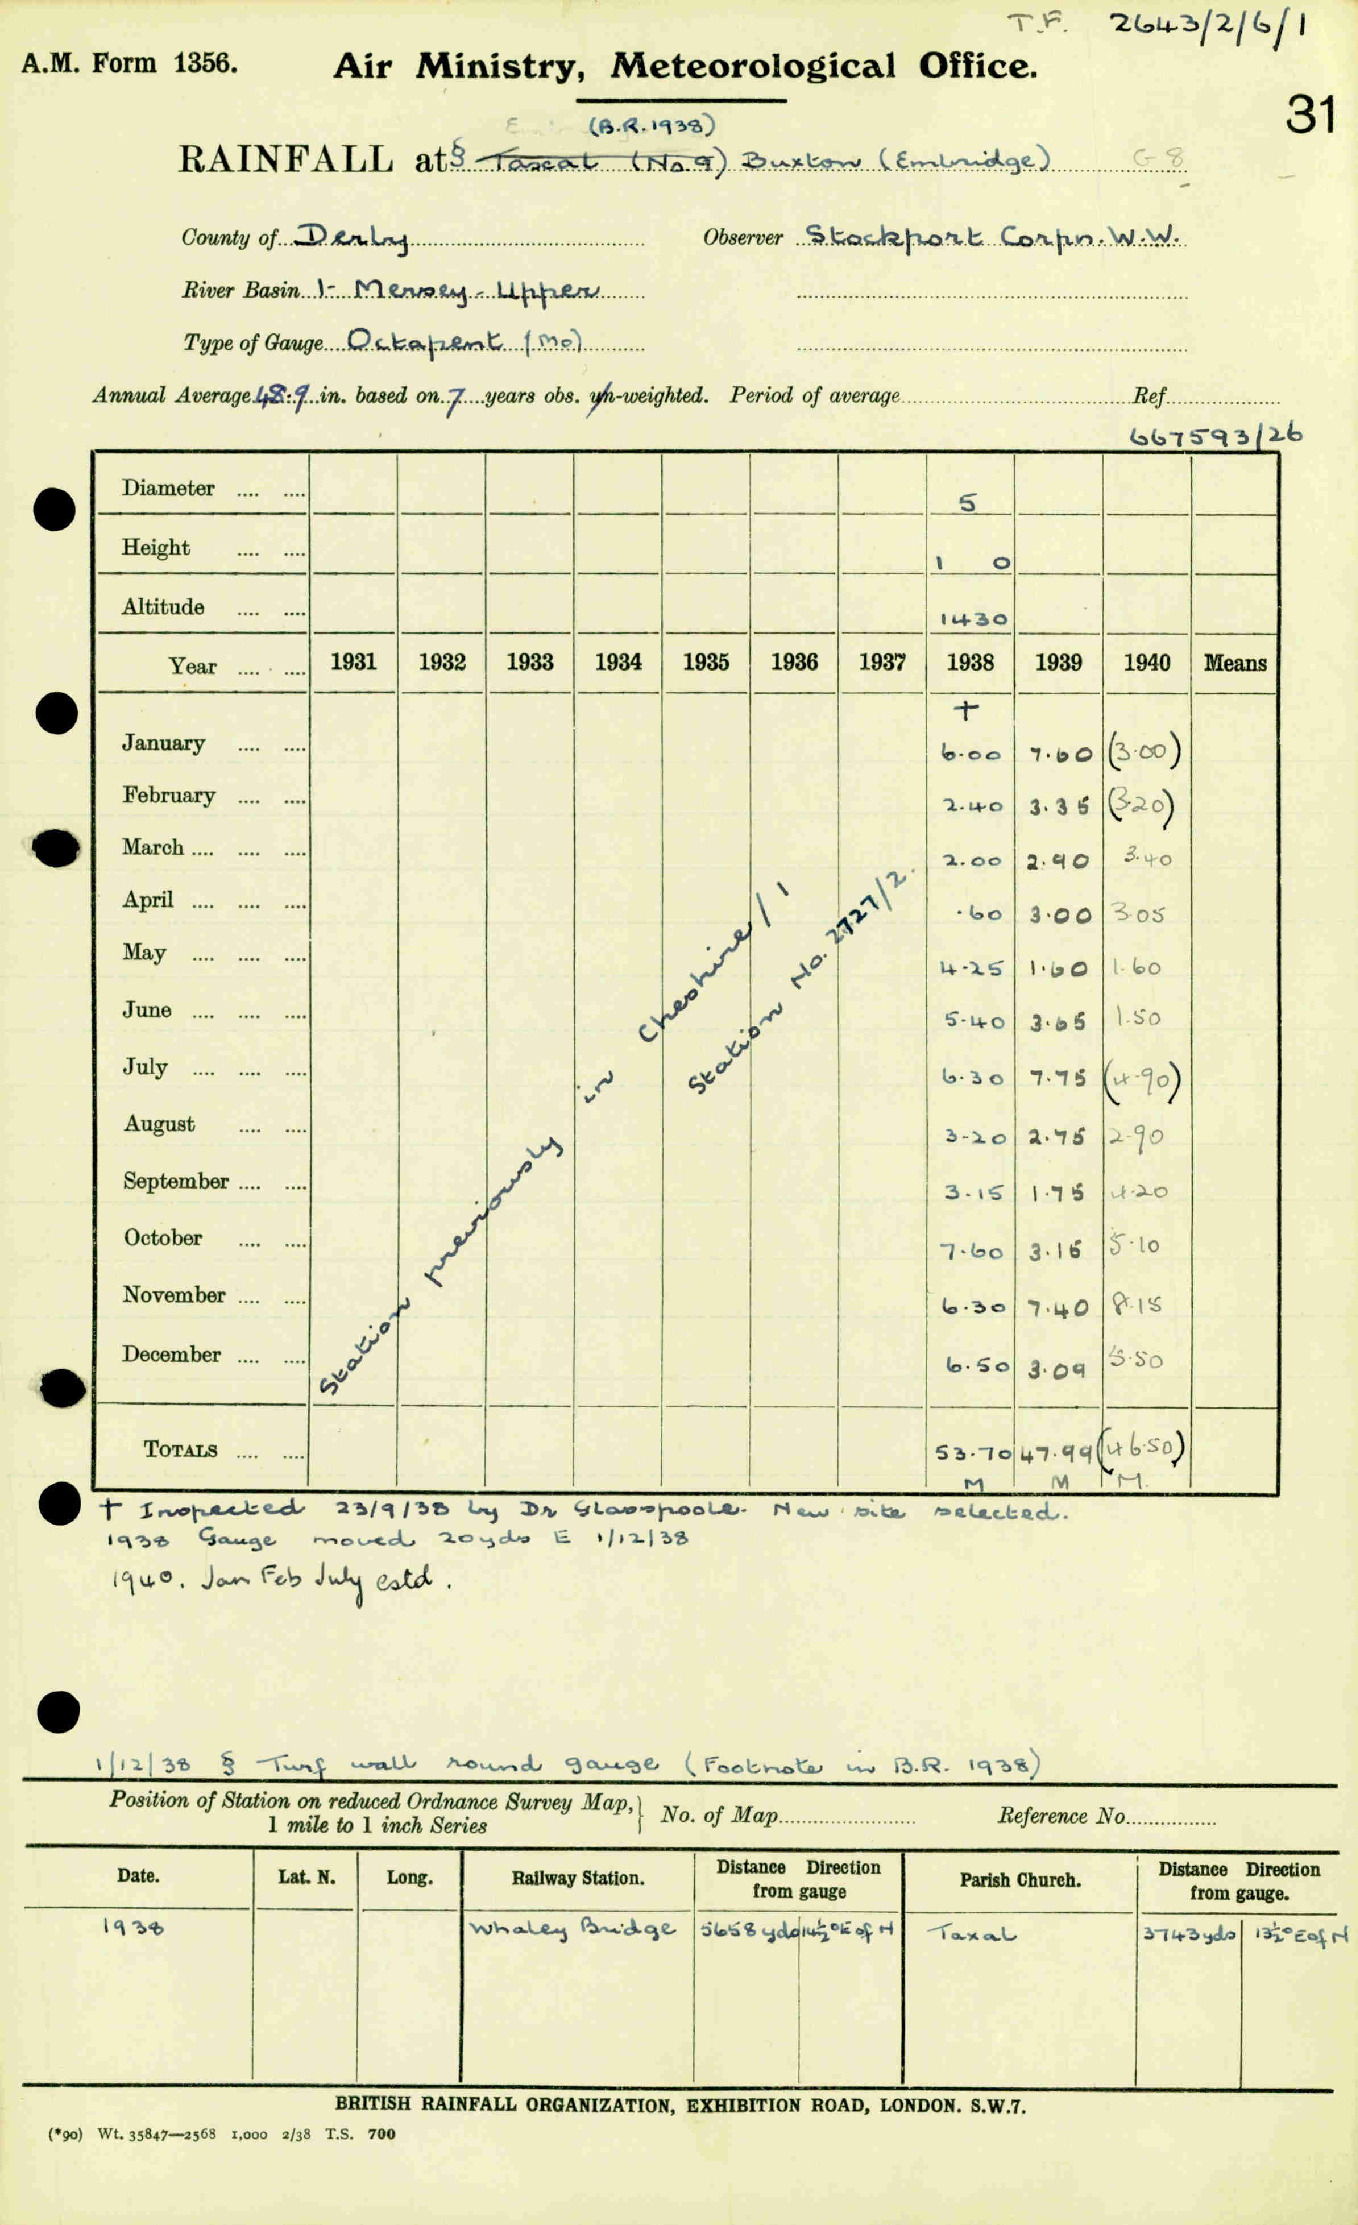 T.F. 2643/2/6/1
A.M. Form 1356. Air Ministry, Meteorological Office.
31
(B.R. 1938)
RAINFALL at § Taxal (No. 9) Buxton (Embridge) G 8
County of Derby Observer Stockport Corpn. W.W.
River Basin 1- Mersey - Upper
Type of Gauge Octapent (Mo)
Annual Average 48.9 in. based on 7 years obs. un-weighted. Period of average Ref
667593/26
Diameter .... .... 5
Height .... .... 1 0
Altitude .... .... 1430
Year .... .... 1931 1932 1933 1934 1935 1936 1937 1938 1939 1940 Means
†
January .... .... 6.00 7.60 (3.00)
February .... .... 2.40 3.35 (3.20)
March .... .... .... 2.00 2.90 3.40
April .... .... .... .60 3.00 3.05
May .... .... .... 4.25 1.60 1.60
June .... .... .... 5.40 3.65 1.50
July .... .... .... 6.30 7.75 (4.90)
August .... .... 3.20 2.75 2.90
September .... .... 3.15 1.75 4.20
October .... .... 7.60 3.15 5.10
November .... .... 6.30 7.40 8.15
December .... .... 6.50 3.09 5.50
Station previously in Cheshire/1
Station No. 2727/2.
TOTALS .... .... 53.70 47.99 (46.50)
M M M.
† Inspected 23/9/38 by Dr Glasspoole. New site selected.
1938 Gauge moved 20yds E 1/12/38
1940. Jan Feb July estd.
1/12/38 § Turf wall round gauge (Footnote in B.R. 1938)
Position of Station on reduced Ordnance Survey Map, 1 mile to 1 inch Series } No. of Map Reference No.
Date. Lat. N. Long. Railway Station. Distance Direction from gauge Parish Church. Distance Direction from gauge.
1938 Whaley Bridge 5658 yds 14½° E of N Taxal 3743 yds 13½° E of N
BRITISH RAINFALL ORGANIZATION, EXHIBITION ROAD, LONDON. S.W.7.
(*90) Wt. 35847—2568 1,000 2/38 T.S. 700